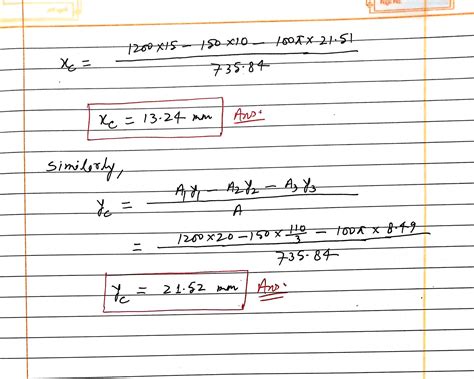 x_c = (1200×15 − 150×10 − 100π×21.51) / 735.84
x_c = 13.24 mm Ans.
Similarly,
y_c = (A₁y₁ − A₂y₂ − A₃y₃) / A
= (1200×20 − 150×110/3 − 100π×8.49) / 735.84
y_c = 21.52 mm Ans.